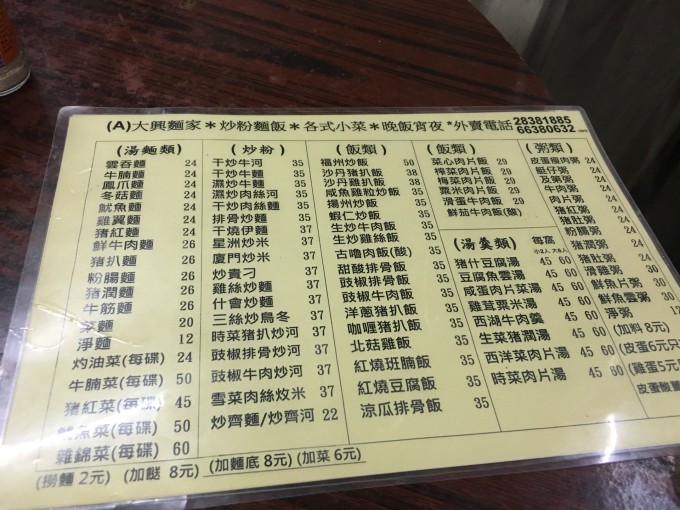 (A)大興麵家＊炒粉麵飯＊各式小菜＊晚飯宵夜*外賣電話 28381885
66380632
(湯麵類)
雲吞麵 24
牛腩麵 24
鳳爪麵 24
冬菇麵 24
魷魚麵 24
雞翼麵 24
猪紅麵 24
鮮牛肉麵 26
猪扒麵 26
粉腸麵 26
猪潤麵 26
牛筋麵 26
菜麵 20
淨麵 12
灼油菜(每碟) 24
牛腩菜(每碟) 50
猪紅菜(每碟) 45
魷魚菜(每碟) 50
雜錦菜(每碟) 60
(炒粉)
干炒牛河 35
干炒牛麵 35
濕炒牛河 35
濕炒肉絲河 35
干炒肉絲麵 35
排骨炒麵 35
干燒伊麵 35
星洲炒米 37
廈門炒米 37
炒貴刁 37
雞絲炒麵 37
什會炒麵 37
三絲炒烏冬 37
時菜猪扒炒河 37
豉椒排骨炒河 37
豉椒牛肉炒河 37
雪菜肉絲炆米 37
炒齊麵/炒齊河 22
(飯類)
福州炒飯 50
沙丹猪扒飯 38
沙丹雞扒飯 38
咸魚雞粒炒飯 38
揚州炒飯 35
蝦仁炒飯 35
生炒牛肉飯 35
生炒雞絲飯 35
古嚕肉飯(酸) 35
甜酸排骨飯 35
豉椒排骨飯 35
豉椒牛肉飯 35
洋蔥猪扒飯 35
咖喱猪扒飯 35
北菇雞飯 35
紅燒班腩飯 35
紅燒豆腐飯 35
涼瓜排骨飯 35
(飯類)
菜心肉片飯 29
榨菜肉片飯 29
梅菜肉片飯 29
粟米肉片飯 29
滑蛋牛肉飯 29
鮮茄牛肉飯(酸)
(湯羹類) 每窩
猪什豆腐湯 45 60
豆腐魚雲湯 45 60
咸蛋肉片菜湯 45 60
雞茸粟米湯 45 60
西湖牛肉羹 45 60
生菜猪潤湯 45 60
西洋菜肉片湯 45 60
時菜肉片湯 45 60
(粥類)
皮蛋瘦肉粥 24
艇仔粥 24
及第粥 24
牛肉粥 24
肉片粥 24
猪紅粥 24
猪肚粥 24
粉腸粥 24
猪潤粥 24
滑雞粥 30
鮮魚片粥 30
鮮魚雲粥 30
淨粥 12
(加料 8元)
(皮蛋 6元/只
(雞蛋 5元/
皮蛋酸薑
(撈麵 2元) (加餸 8元) (加麵底 8元) (加菜 6元)